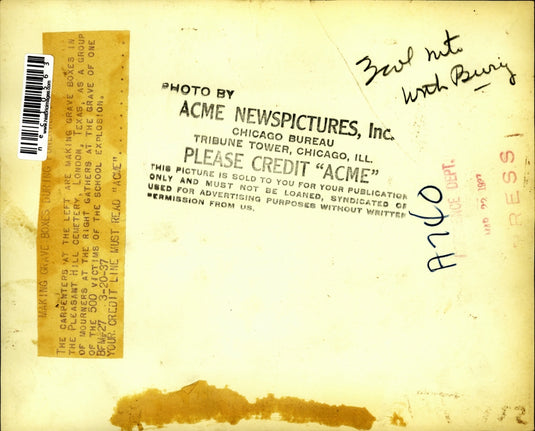 MAKING GRAVE BOXES DURING
THE CARPENTERS AT THE LEFT ARE MAKING GRAVE BOXES IN
THE PLEASANT HILL CEMETERY, LONDON, TEXAS, AS A GROUP
OF MOURNERS AT THE RIGHT GATHERS AT THE GRAVE OF ONE
OF THE 500 VICTIMS OF THE SCHOOL EXPLOSION.
BFM#27 3-20-37
YOUR CREDIT LINE MUST READ "ACME"
PHOTO BY
ACME NEWSPICTURES, Inc.
CHICAGO BUREAU
TRIBUNE TOWER, CHICAGO, ILL.
PLEASE CREDIT "ACME"
THIS PICTURE IS SOLD TO YOU FOR YOUR PUBLICATION
ONLY AND MUST NOT BE LOANED, SYNDICATED OR
USED FOR ADVERTISING PURPOSES WITHOUT WRITTEN
PERMISSION FROM US.
3 col
With
A740
DEPT.
PRESS